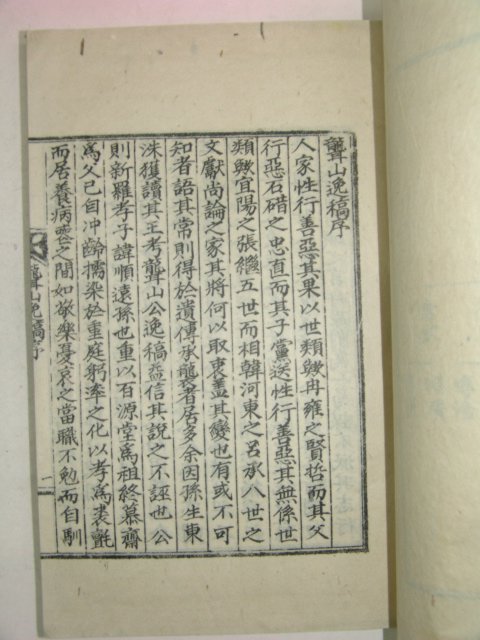 聾山逸稿序
人家性行善惡其果以世類歟冉雍之賢哲而其父
行惡石碏之忠直而其子黨逆性行善惡其無係世
類歟宜陽之張繼五世而相韓河東之呂承八世之
文獻尚論之家其將何以取裏盖其變也有或不可
知者語其常則得於遺傳承襲者居多余因孫生東
洙獲讀其王考聾山公逸稿益信其說之不誣也公
則新羅孝子諱順遠孫也重以百源堂爲祖終慕齋
爲父已自冲齡擩染於重庭躬率之化以孝爲裘氈
而居養病喪之間如敬樂憂哀之當職不勉而自馴
聾山逸稿序
一